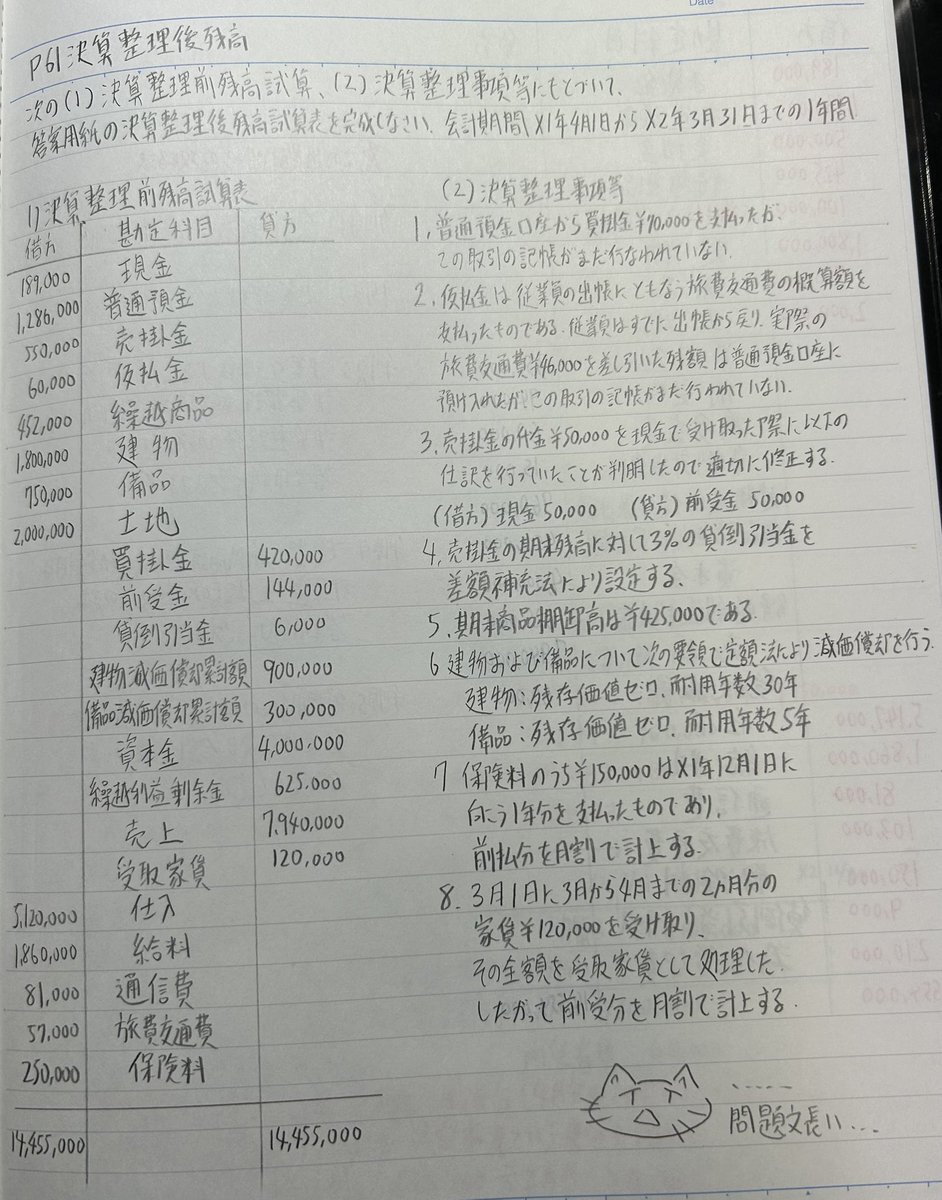 Date
P61 決算整理後残高
次の(1)決算整理前残高試算、(2)決算整理事項等にもとづいて、
答案用紙の決算整理後残高試算表を完成しなさい。会計期間X1年4月1日からX2年3月31日までの1年間
1)決算整理前残高試算表
借方 勘定科目 貸方
189,000 現金
1,286,000 普通預金
550,000 売掛金
60,000 仮払金
452,000 繰越商品
1,800,000 建物
750,000 備品
2,000,000 土地
買掛金 420,000
前受金 144,000
貸倒引当金 6,000
建物減価償却累計額 900,000
備品減価償却累計額 300,000
資本金 4,000,000
繰越利益剰余金 625,000
売上 7,940,000
受取家賃 120,000
5,120,000 仕入
1,860,000 給料
81,000 通信費
57,000 旅費交通費
250,000 保険料
14,455,000 14,455,000
(2)決算整理事項等
1、普通預金口座から買掛金¥70,000を支払ったが、
この取引の記帳がまだ行なわれていない。
2、仮払金は従業員の出帳にともなう旅費交通費の概算額を
支払ったものである。従業員はすでに出帳から戻り、実際の
旅費交通費¥46,000を差し引いた残額は普通預金口座に
預け入れたが、この取引の記帳がまだ行われていない。
3、売掛金の代金¥50,000を現金で受け取った際に以下の
仕訳を行っていたことが判明したので適切に修正する。
(借方)現金50,000 (貸方)前受金50,000
4、売掛金の期末残高に対して3%の貸倒引当金を
差額補充法により設定する、
5、期末商品棚卸高は¥425,000である。
6 建物および備品について次の要領で定額法により減価償却を行う.
建物:残存価値ゼロ、耐用年数30年
備品:残存価値ゼロ、耐用年数5年
7 保険料のうち¥150,000はX1年12月1日に
向こう1年分を支払ったものであり、
前払分を月割で計上する。
8、3月1日に3月から4月までの2ヵ月分の
家賃¥120,000を受け取り、
その全額を受取家賃として処理した.
したがって前受分を月割で計上する.
.....
問題文長い...